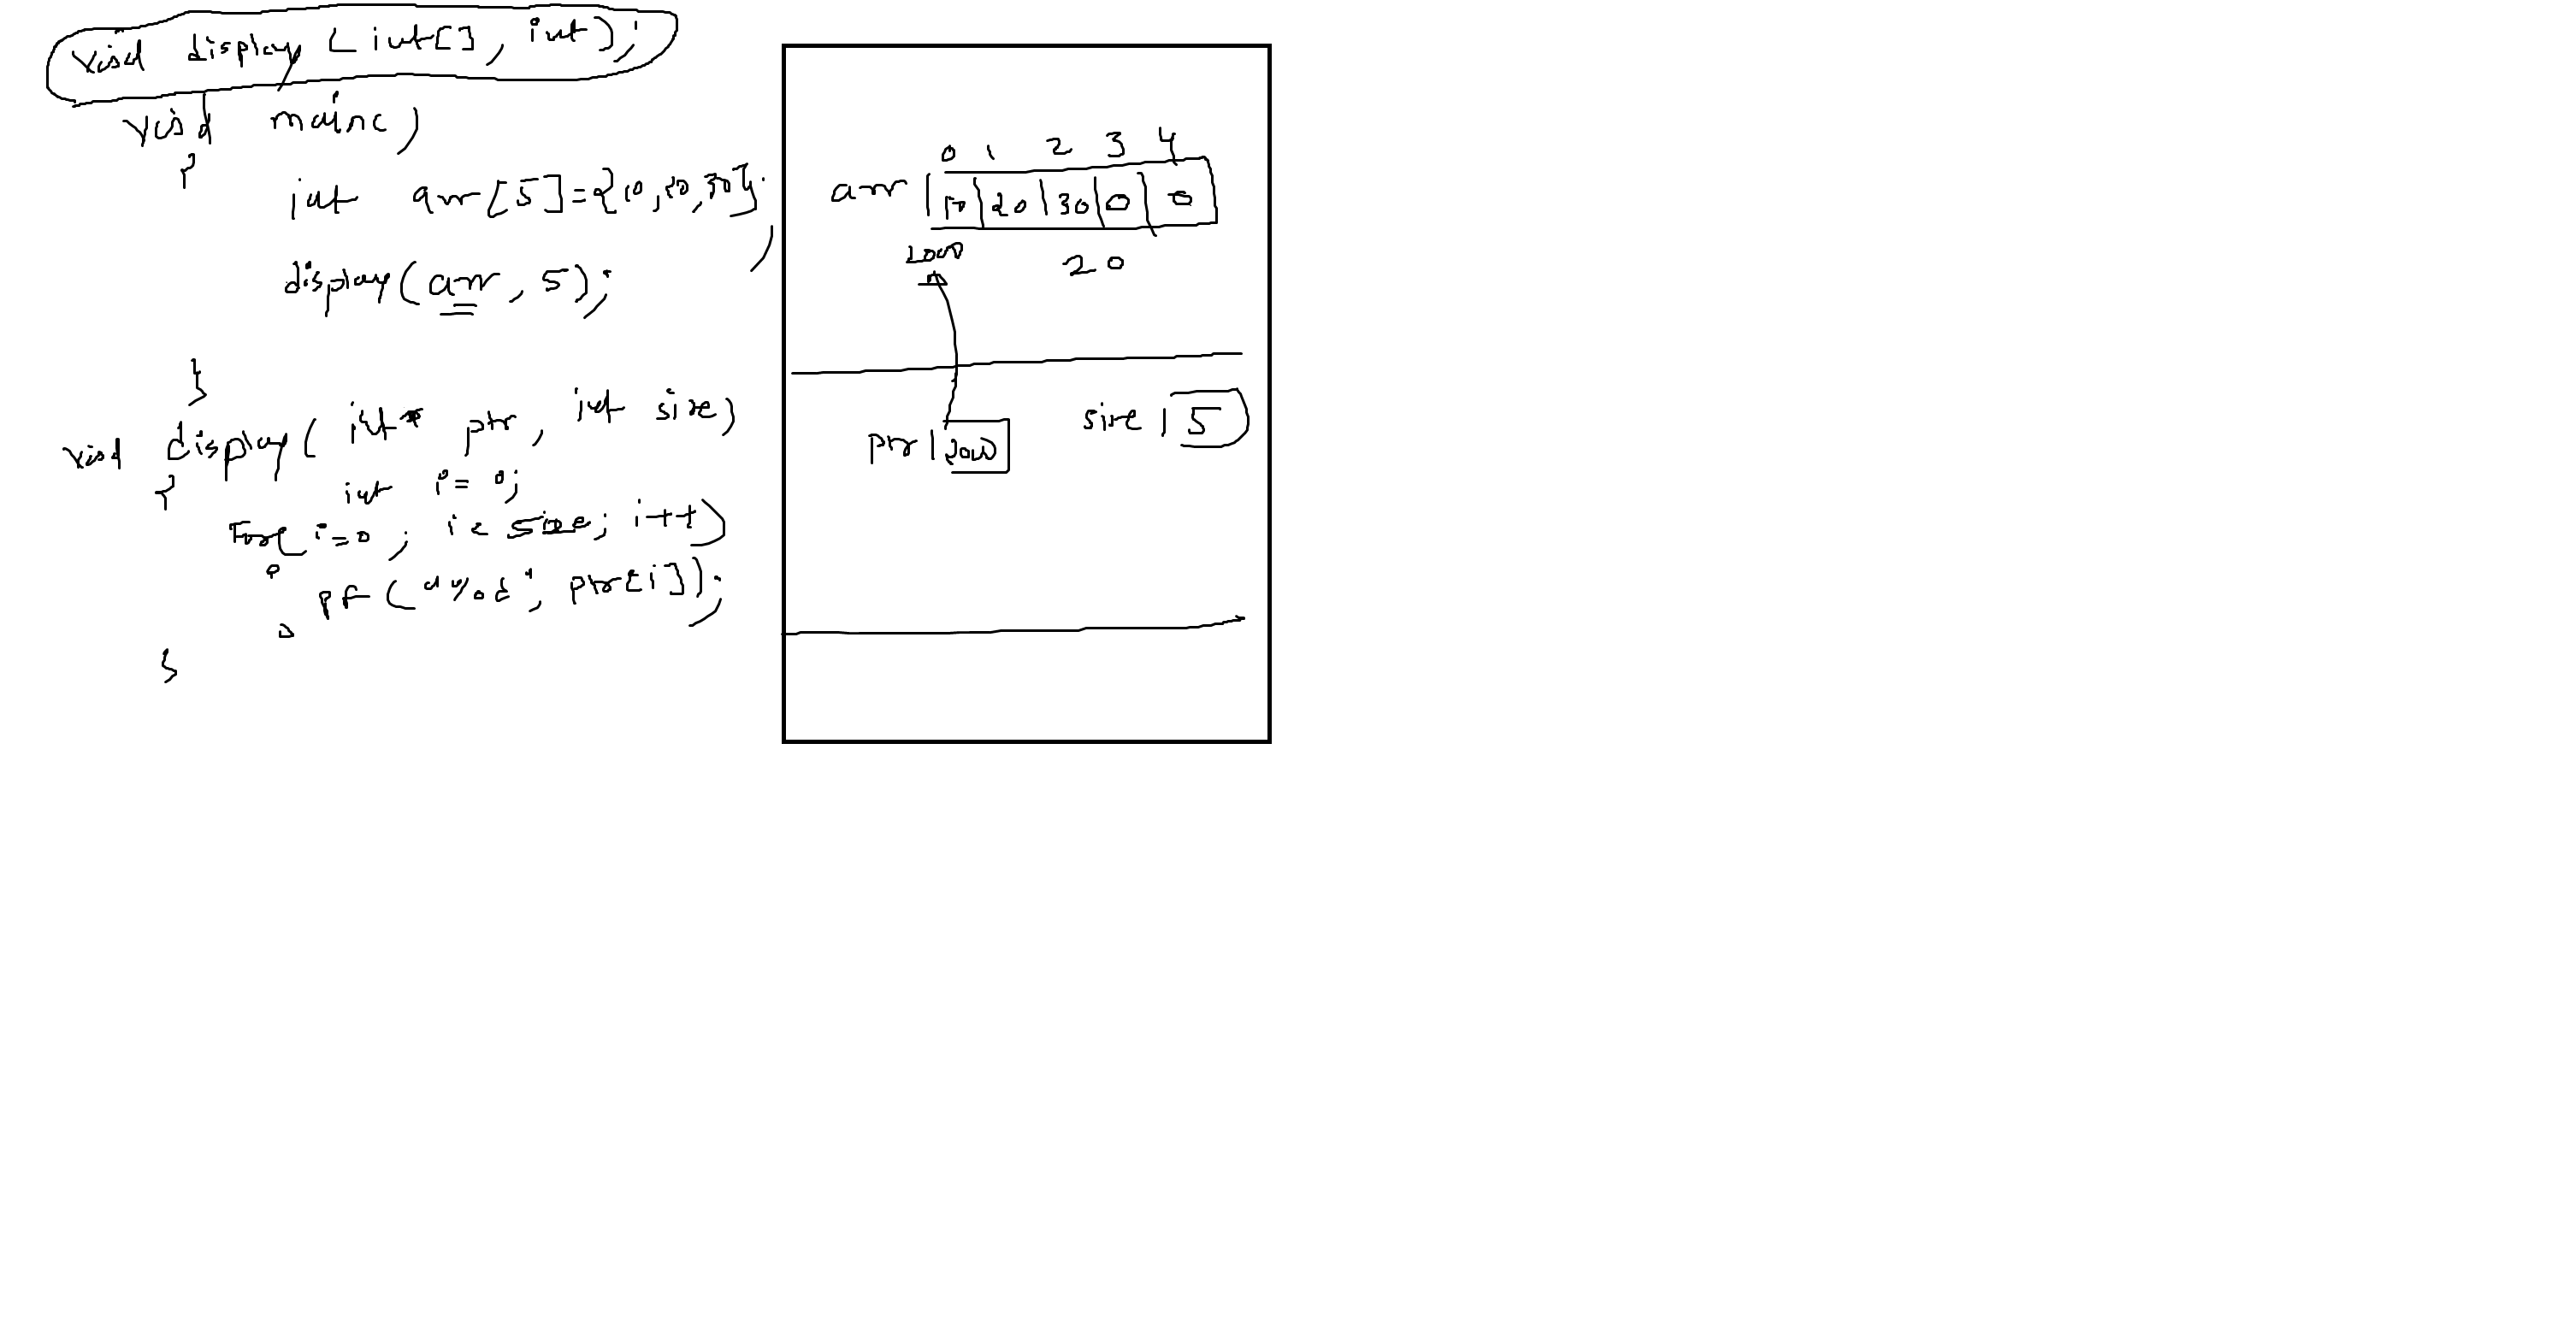 void display (int[], int);
void main()
{
int arr[5]={10,20,30};
display(arr, 5);
}
void display( int* ptr, int size)
{
int i= 0;
For( i=0; i< size; i++)
{
pf("%d", ptr[i]);
}
}
0 1 2 3 4
arr 10 20 30 0 0
20
ptr 2000
size 5